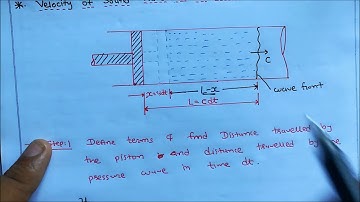 *. Velocity of Sound
L-x
x=vdt
c
L=cdt
wave front
Step:1 Define terms & find Distance travelled by
the piston & and distance travelled by the
pressure wave in time dt.